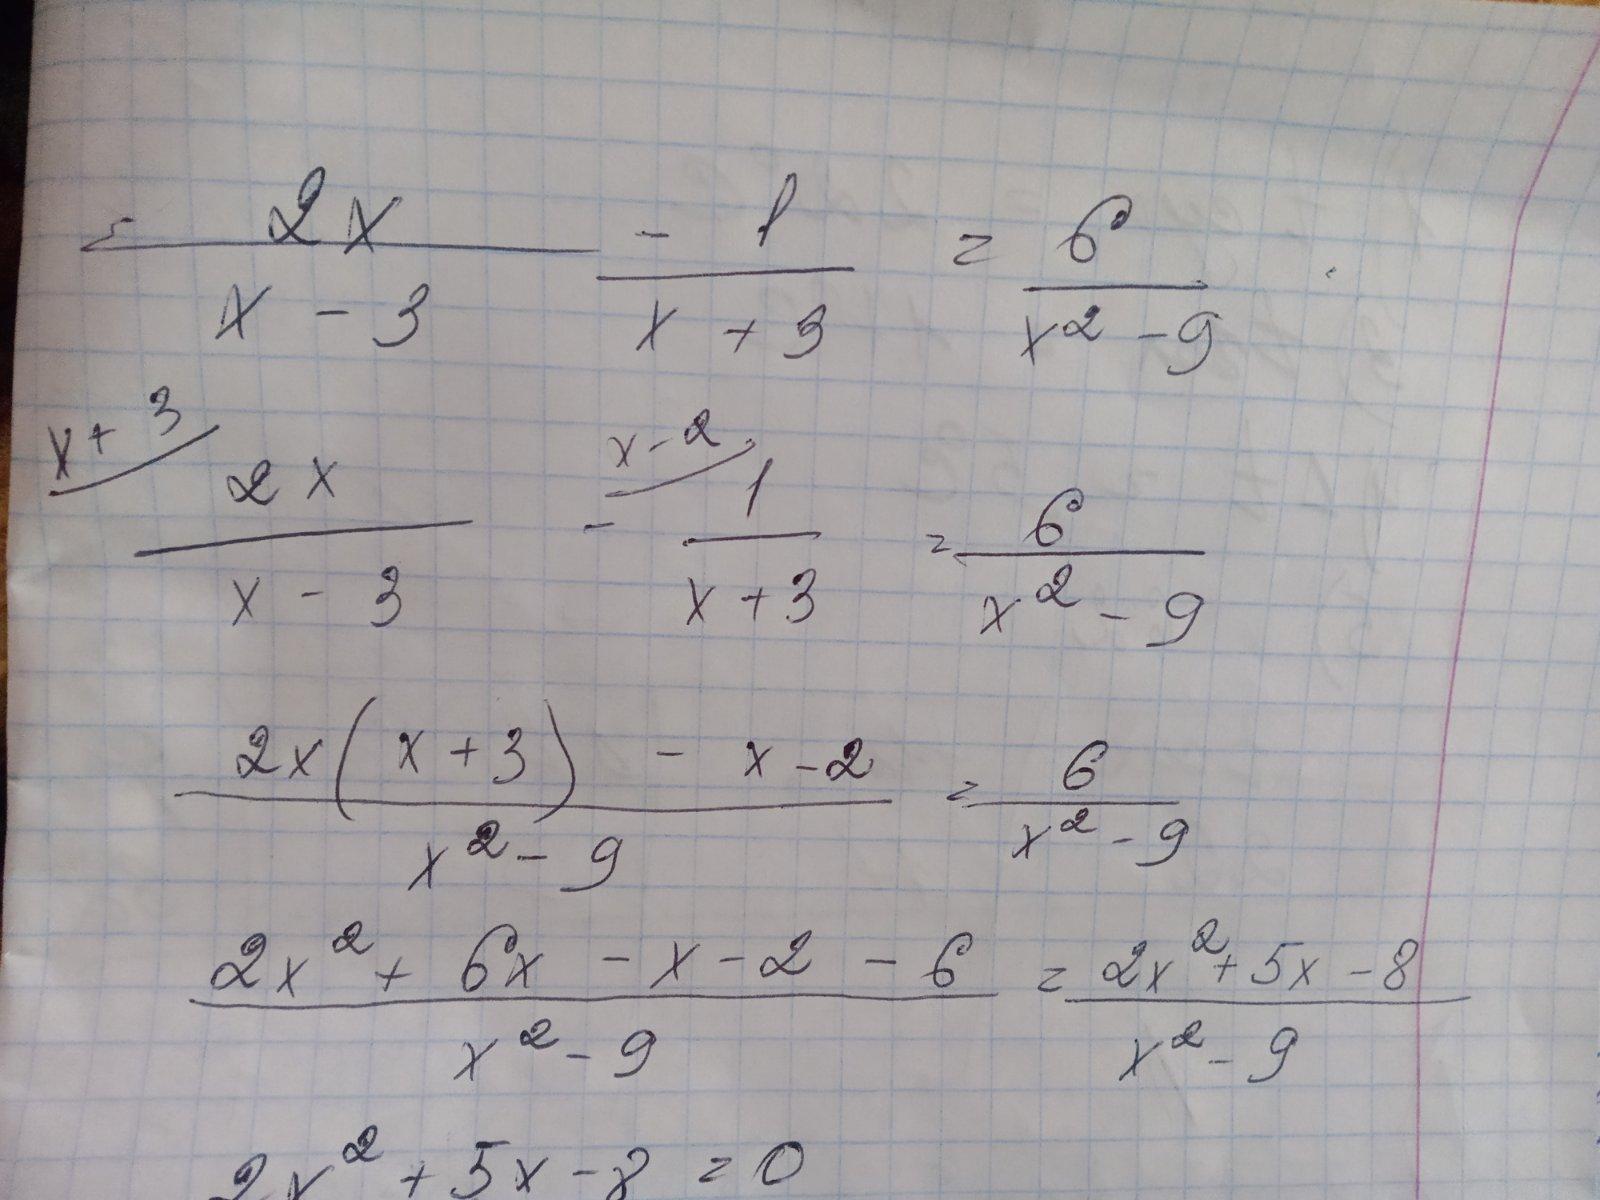 = 2x/(x - 3) - 1/(x + 3) = 6/(x² - 9)
x + 3 x - 2
2x/(x - 3) - 1/(x + 3) = 6/(x² - 9)
(2x(x + 3) - x - 2)/(x² - 9) = 6/(x² - 9)
(2x² + 6x - x - 2 - 6)/(x² - 9) = (2x² + 5x - 8)/(x² - 9)
2x² + 5x - 8 = 0